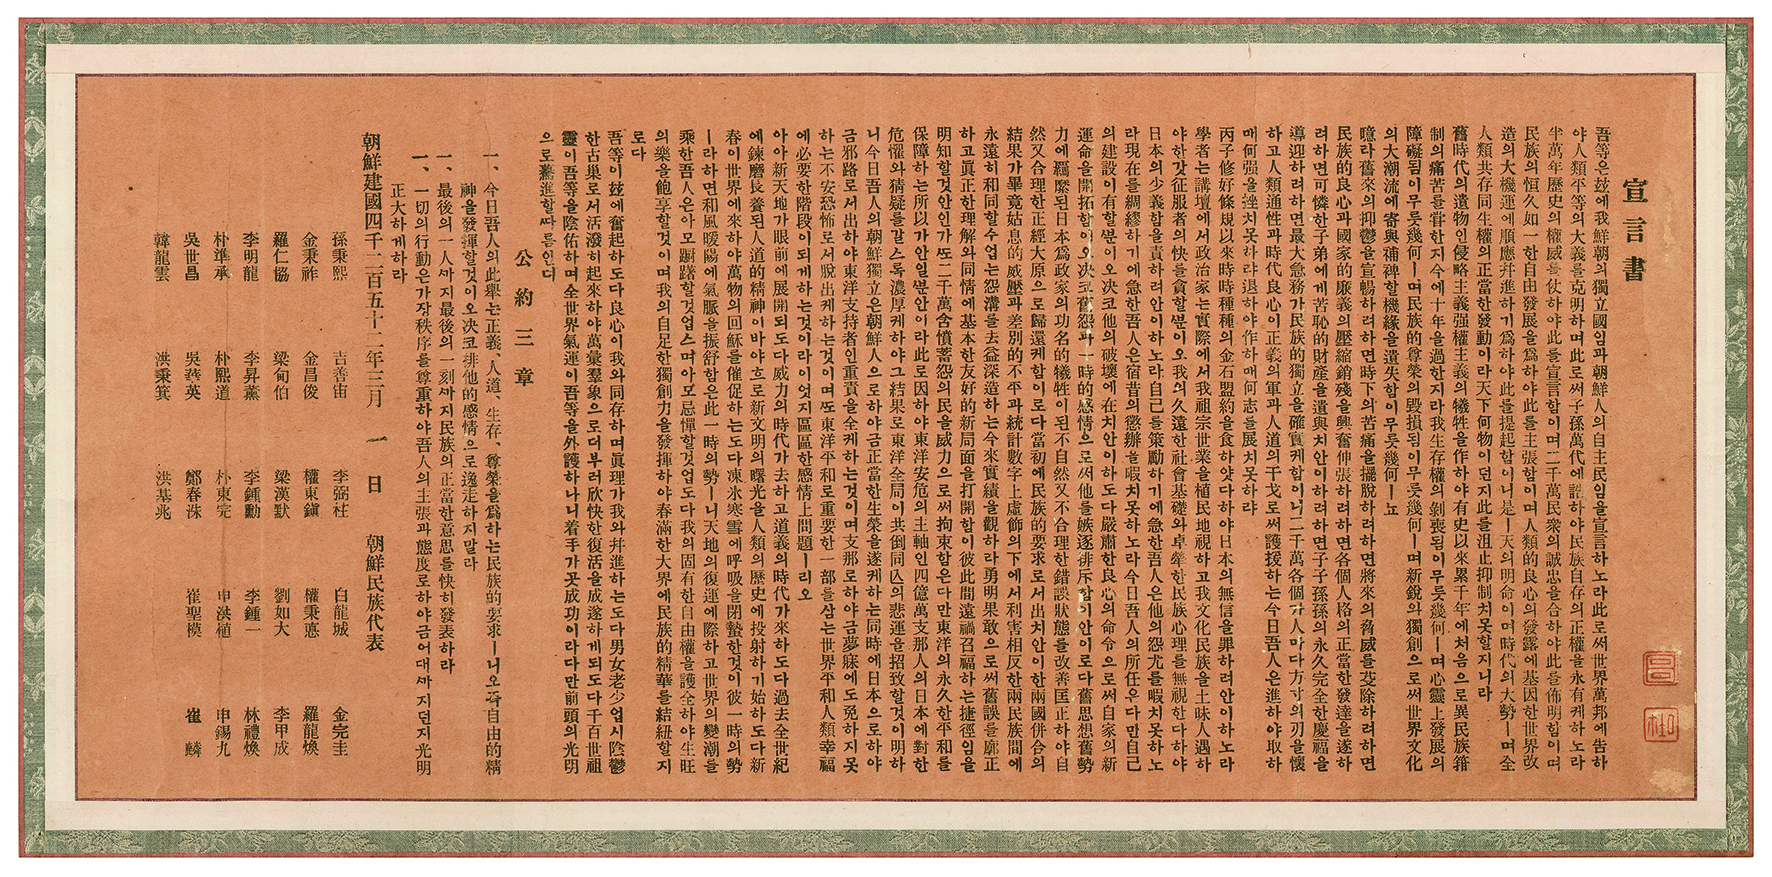 宣言書
吾等은玆에我鮮朝의獨立國임과朝鮮人의自主民임을宣言하노라此로써世界萬邦에告하
야人類平等의大義를克明하며此로써子孫萬代에誥하야民族自存의正權을永有케하노라
半萬年歷史의權威를仗하야此를宣言함이며二千萬民衆의誠忠을合하야此를佈明함이며
民族의恒久如一한自由發展을爲하야此를主張함이며人類的良心의發露에基因한世界改
造의大機運에順應幷進하기爲하야此를提起함이니是ㅣ天의明命이며時代의大勢ㅣ며全
人類共存同生權의正當한發動이라天下何物이던지此를沮止抑制치못할지니라
舊時代의遺物인侵略主義强權主義의犧牲을作하야有史以來累千年에처음으로異民族箝
制의痛苦를嘗한지今에十年을過한지라我生存權의剝喪됨이무릇幾何ㅣ며心靈上發展의
障礙됨이무릇幾何ㅣ며民族的尊榮의毁損됨이무릇幾何ㅣ며新銳와獨創으로써世界文化
의大潮流에寄與補裨할機緣을遺失함이무릇幾何ㅣ뇨
噫라舊來의抑鬱을宣暢하려하면時下의苦痛을擺脫하려하면將來의脅威를芟除하려하면
民族的良心과國家的廉義의壓縮銷殘을興奮伸張하려하면各個人格의正當한發達을遂하
려하면可憐한子弟에게苦恥的財產을遺與치안이하려하면子子孫孫의永久完全한慶福을
導迎하려하면最大急務가民族的獨立을確實케함이니二千萬各個가人마다方寸의刃을懷
하고人類通性과時代良心이正義의軍과人道의干戈로써護援하는今日吾人은進하야取하
매何强을挫치못하랴退하야作하매何志를展치못하랴
丙子修好條規以來時時種種의金石盟約을食하얏다하야日本의無信을罪하려안이하노라
學者는講壇에서政治家는實際에서我祖宗世業을植民地視하고我文化民族을土昧人遇하
야한갓征服者의快를貪할ᄲᅮᆫ이오我의久遠한社會基礎와卓犖한民族心理를無視한다하야
日本의少義함을責하려안이하노라自己를策勵하기에急한吾人은他의怨尤를暇치못하노
라現在를綢繆하기에急한吾人은宿昔의懲辦을暇치못하노라今日吾人의所任은다만自己
의建設이有할ᄲᅮᆫ이오决코他의破壞에在치안이하도다嚴肅한良心의命令으로써自家의新
運命을開拓함이오决코舊怨과一時的感情으로써他를嫉逐排斥함이안이로다舊思想舊勢
力에羈縻된日本爲政家의功名的犧牲이된不自然又不合理한錯誤狀態를改善匡正하야自
然又合理한正經大原으로歸還케함이로다當初에民族的要求로서出치안이한兩國併合의
結果가畢竟姑息的威壓과差別的不平과統計數字上虛飾의下에서利害相反한兩民族間에
永遠히和同할수업는怨溝를去益深造하는今來實績을觀하라勇明果敢으로써舊誤를廓正
하고眞正한理解와同情에基本한友好的新局面을打開함이彼此間遠禍召福하는捷徑임을
明知할것안인가ᄯᅩ二千萬含憤蓄怨의民을威力으로써拘束함은다만東洋의永久한平和를
保障하는所以가안일ᄲᅮᆫ안이라此로因하야東洋安危의主軸인四億萬支那人의日本에對한
危懼와猜疑를갈스록濃厚케하야그結果로東洋全局이共倒同亾의悲運을招致할것이明하
니今日吾人의朝鮮獨立은朝鮮人으로하야금正當한生榮을遂케하는同時에日本으로하야
금邪路로서出하야東洋支持者인重責을全케하는것이며支那로하야금夢寐에도免하지못
하는不安恐怖로서脫出케하는것이며ᄯᅩ東洋平和로重要한一部를삼는世界平和人類幸福
에必要한階段이되게하는것이라이엇지區區한感情上問題ㅣ리오
아아新天地가眼前에展開되도다威力의時代가去하고道義의時代가來하도다過去全世紀
에鍊磨長養된人道的精神이바야흐로新文明의曙光을人類의歷史에投射하기始하도다新
春이世界에來하야萬物의回穌를催促하는도다凍氷寒雪에呼吸을閉蟄한것이彼一時의勢
ㅣ라하면和風暖陽에氣脈을振舒함은此一時의勢ㅣ니天地의復運에際하고世界의變潮를
乘한吾人은아모躕躇할것업스며아모忌憚할것업도다我의固有한自由權을護全하야生旺
의樂을飽享할것이며我의自足한獨創力을發揮하야春滿한大界에民族的精華를結紐할지
로다
吾等이玆에奮起하도다良心이我와同存하며眞理가我와幷進하는도다男女老少업시陰鬱
한古巢로서活潑히起來하야萬彙羣象으로더부러欣快한復活을成遂하게되도다千百世祖
靈이吾等을陰佑하며全世界氣運이吾等을外護하나니着手가곳成功이라다만前頭의光明
으로驀進할ᄯᅡ름인뎌
公約三章
一、今日吾人의此擧는正義、人道、生存、尊榮을爲하는民族的要求ㅣ니오즉自由的精
神을發揮할것이오决코排他的感情으로逸走하지말라
一、最後의一人ᄭᅡ지最後의一刻ᄭᅡ지民族의正當한意思를快히發表하라
一、一切의行動은가장秩序를尊重하야吾人의主張과態度로하야금어대ᄭᅡ지던지光明
正大하게하라
朝鮮建國四千二百五十二年三月 一 日 朝鮮民族代表
孫秉熙 吉善宙 李弼柱 白龍城 金完圭
金秉祚 金昌俊 權東鎭 權秉悳 羅龍煥
羅仁協 梁甸伯 梁漢默 劉如大 李甲成
李明龍 李昇薰 李鍾勳 李鍾一 林禮煥
朴準承 朴熙道 朴東完 申洪植 申錫九
吳世昌 吳華英 鄭春洙 崔聖模 崔 麟
韓龍雲 洪秉箕 洪基兆